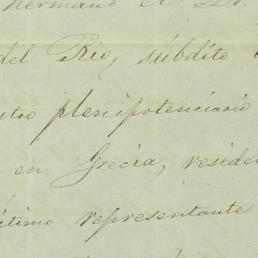 hermano
del Rio, súbdito
plenipotenciario
en Grecia, reside
representante